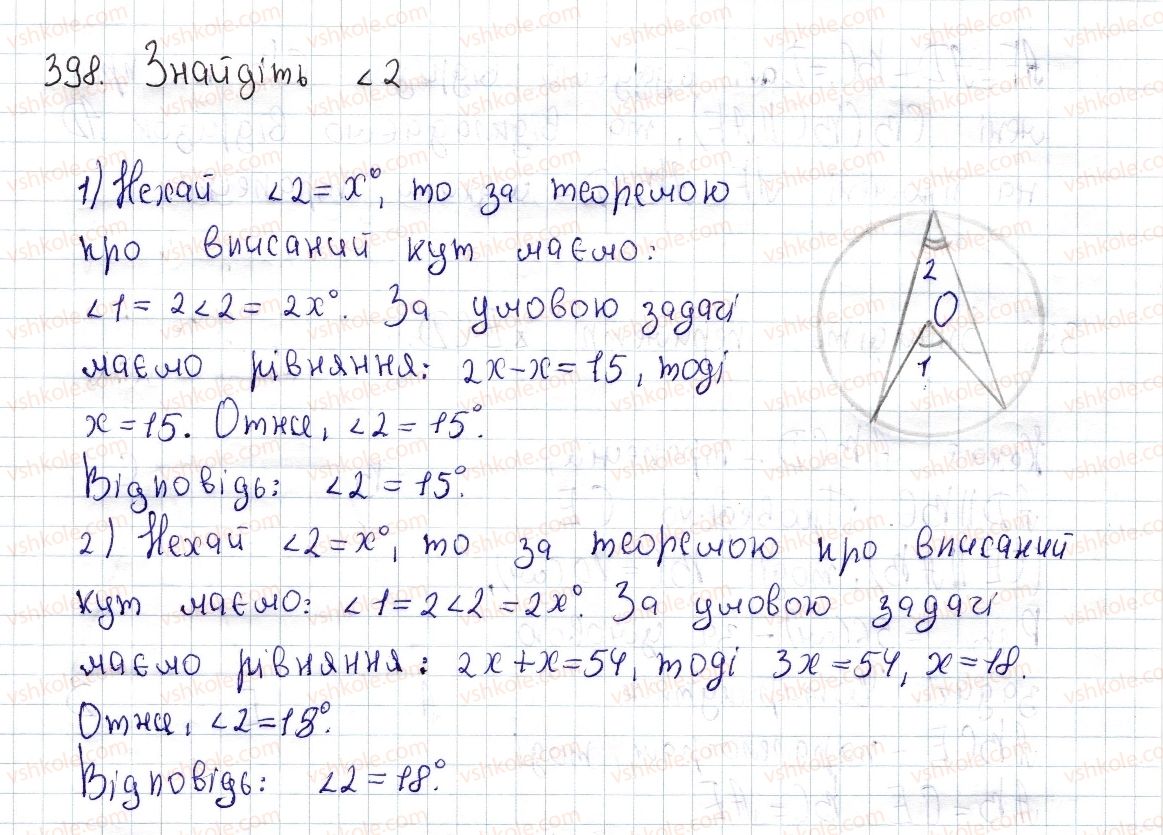 398. Знайдіть ∠2
1) Нехай ∠2 = x°, то за теоремою
про вписаний кут маємо:
∠1 = 2∠2 = 2x°. За умовою задачі
маємо рівняння: 2x - x = 15, тоді
x = 15. Отже, ∠2 = 15°.
Відповідь: ∠2 = 15°.
2) Нехай ∠2 = x°, то за теоремою про вписаний
кут маємо: ∠1 = 2∠2 = 2x°. За умовою задачі
маємо рівняння: 2x + x = 54, тоді 3x = 54, x = 18.
Отже, ∠2 = 18°.
Відповідь: ∠2 = 18°.
2
O
1
vshkole.com